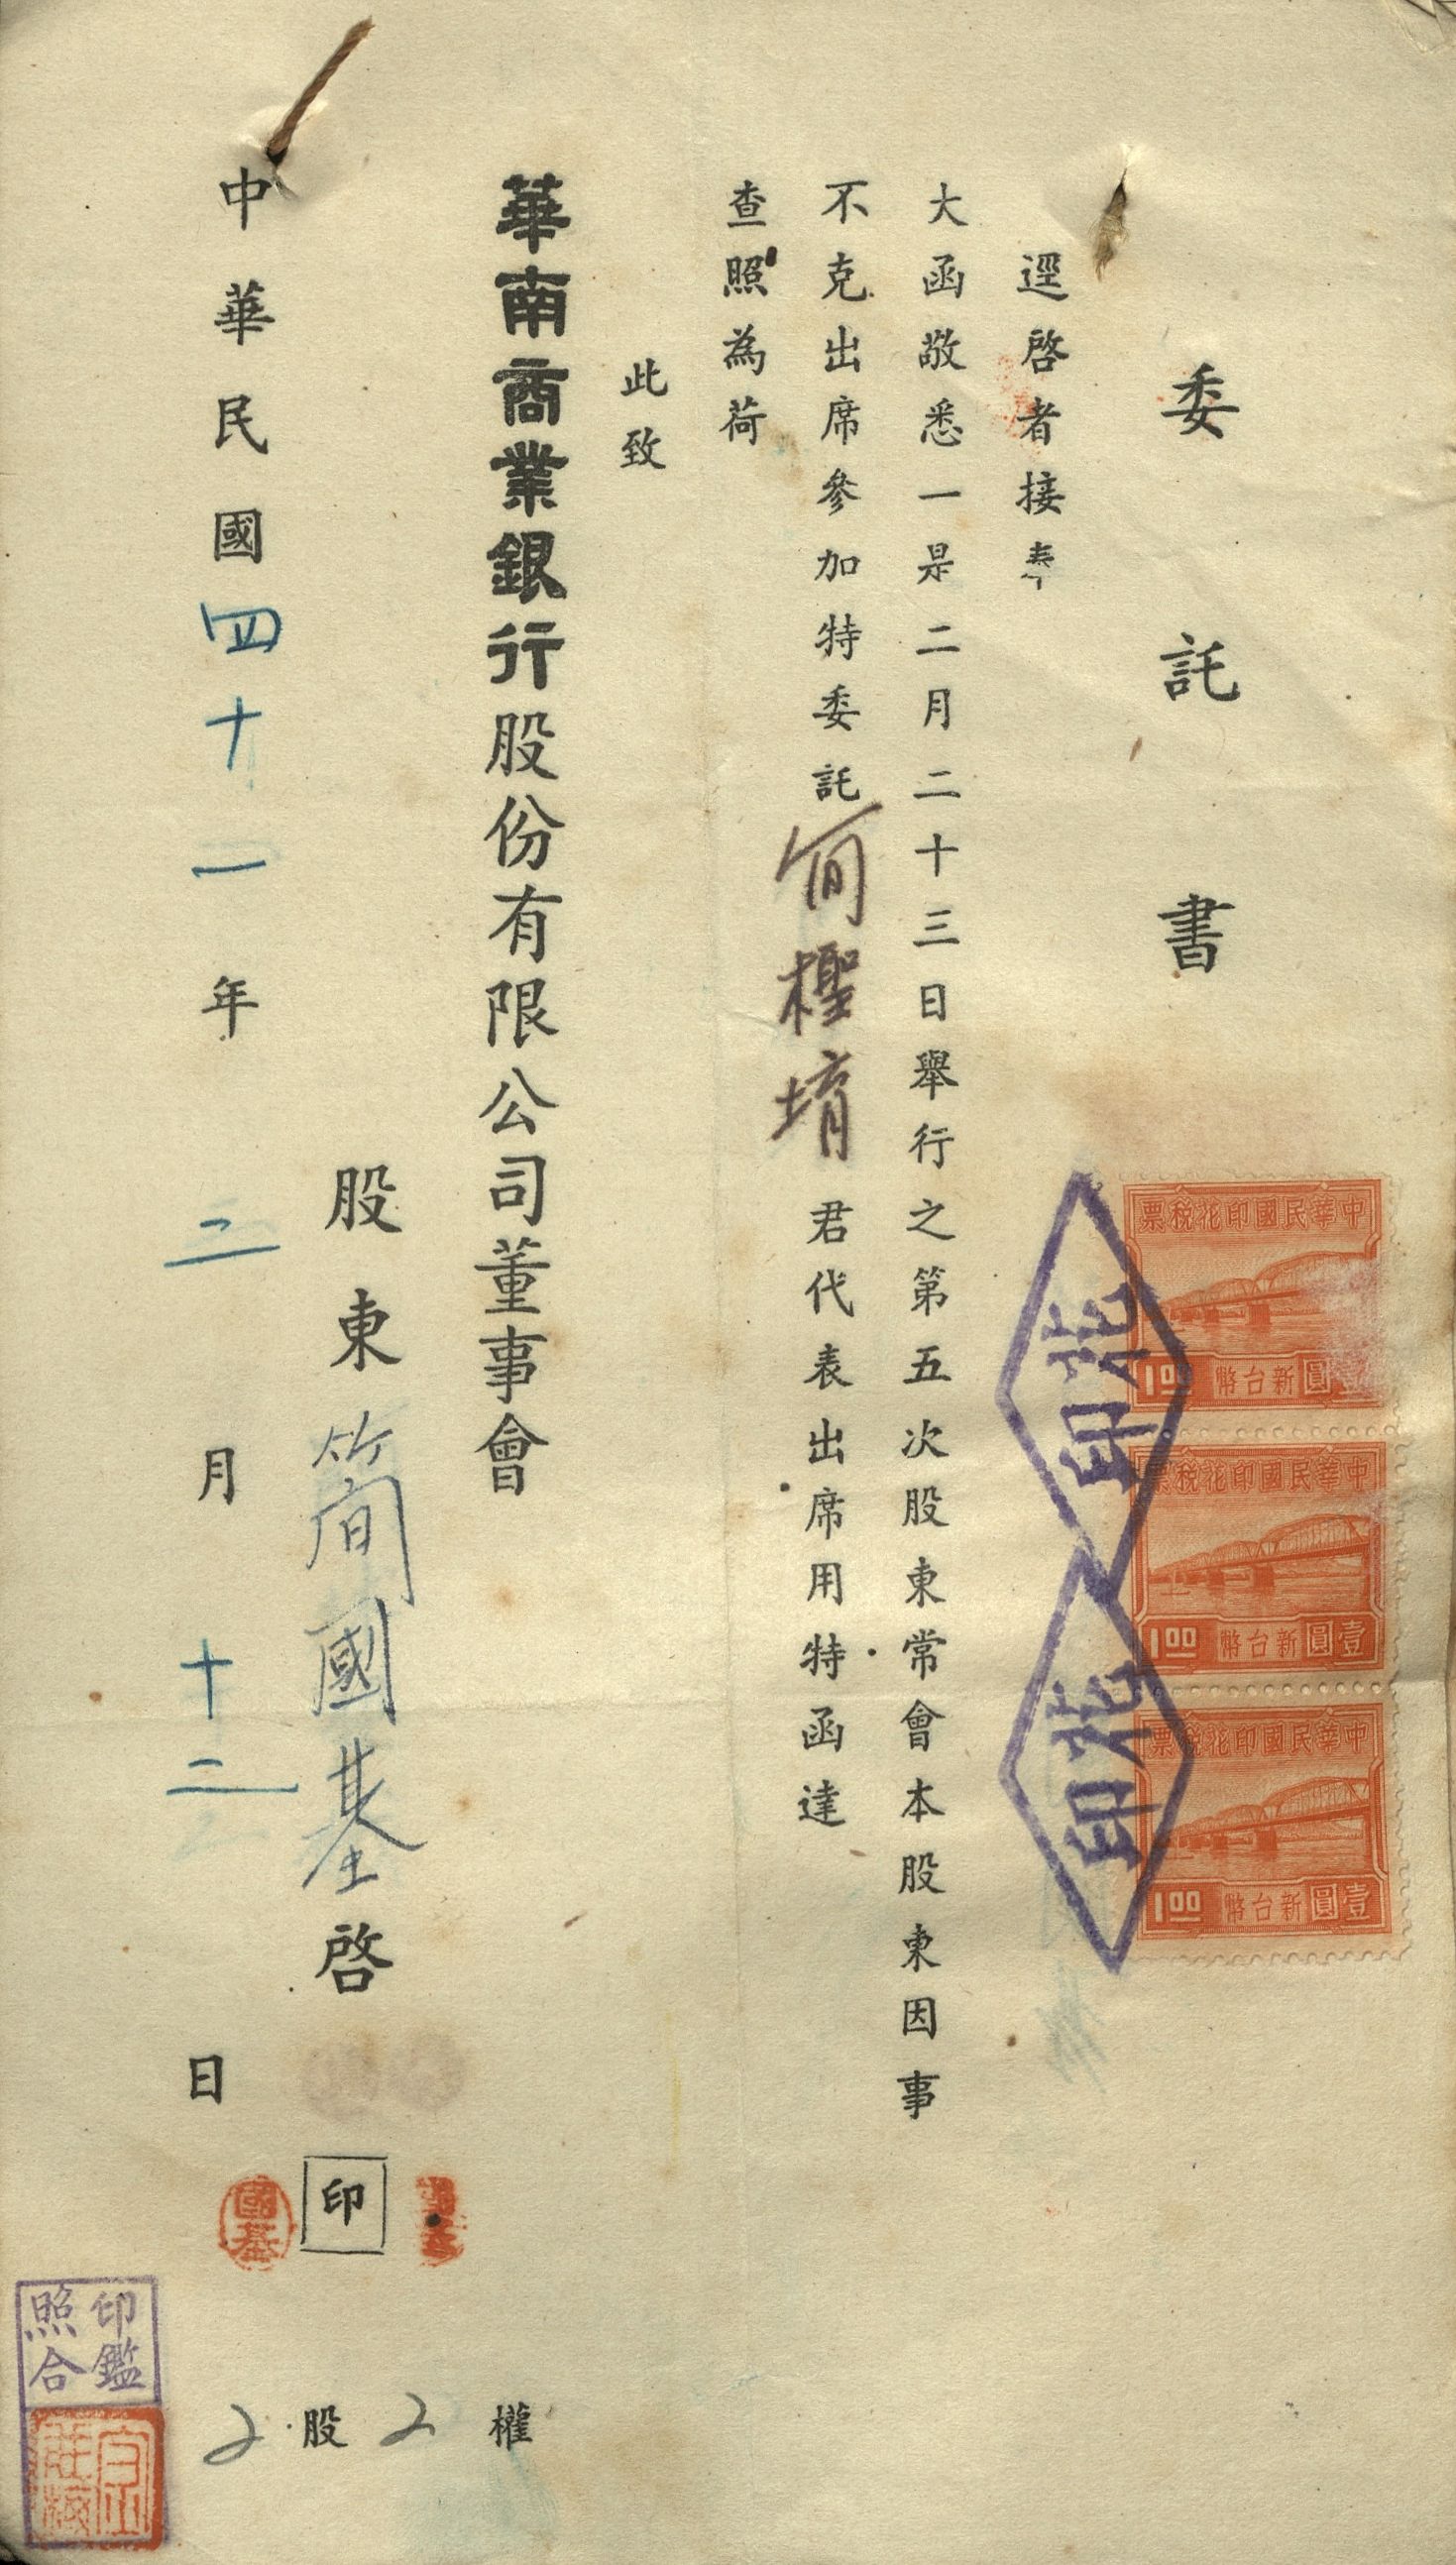 委託書
逕啓者接奉
大函敬悉一是二月二十三日舉行之第五次股東常會本股東因事
不克出席參加特委託簡檉堉君代表出席用特函達
查照為荷
此致
華南商業銀行股份有限公司董事會
股東簡國基啓
印
國基
中華民國四十一年二月十二日
權2
股2
印鑑
照合
中華民國印花稅票
壹圓新台幣1.00
中華民國印花稅票
壹圓新台幣1.00
中華民國印花稅票
壹圓新台幣1.00
印花
印花